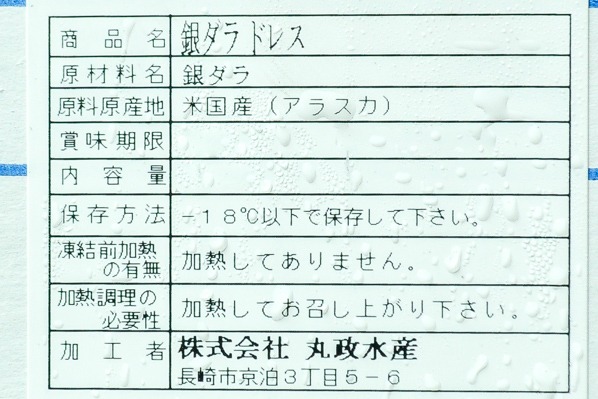 商品名 銀ダラドレス
原材料名 銀ダラ
原料原産地 米国産（アラスカ）
賞味期限
内容量
保存方法 −１８℃以下で保存して下さい。
凍結前加熱
の有無 加熱してありません。
加熱調理の
必要性 加熱してお召し上がり下さい。
加工者 株式会社 丸政水産
長崎市京泊３丁目５−６